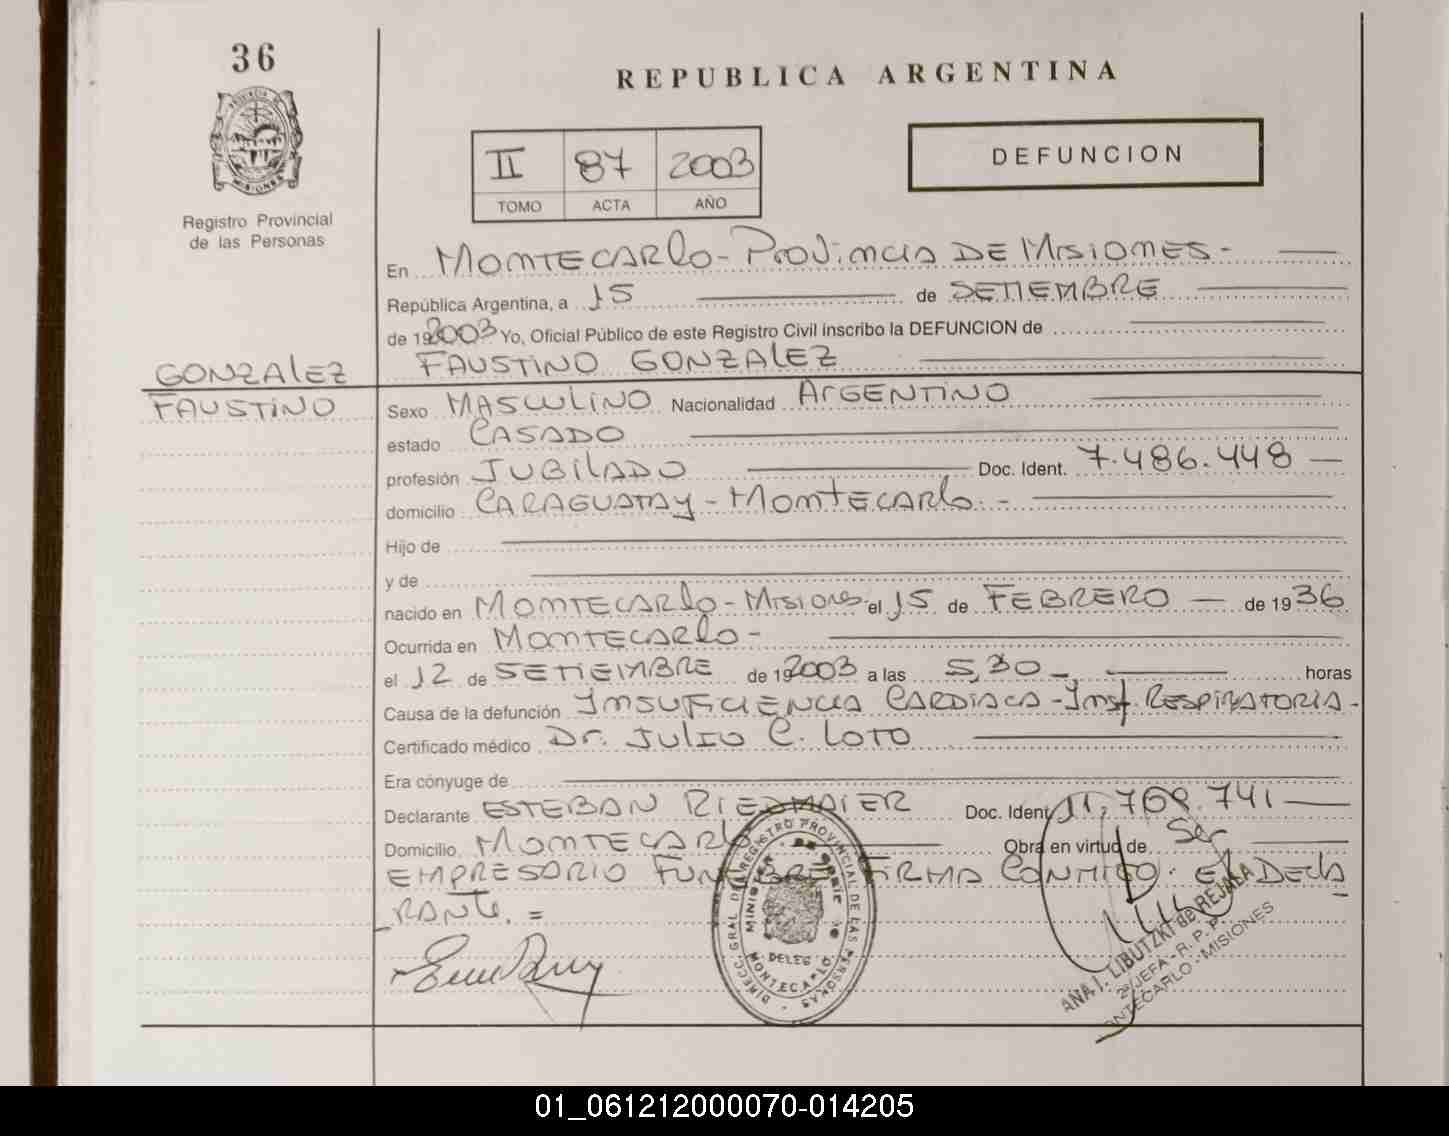 36
REPUBLICA ARGENTINA
PROVINCIA DE
MISIONES
Registro Provincial
de las Personas
II 87 2003
TOMO ACTA AÑO
DEFUNCION
En MONTECARLO - PROVINCIA DE MISIONES -
República Argentina, a 15 de SETIEMBRE
de 192003 Yo, Oficial Público de este Registro Civil inscribo la DEFUNCION de
FAUSTINO GONZALEZ
GONZALEZ
FAUSTINO
Sexo MASCULINO Nacionalidad ARGENTINO
estado CASADO
profesión JUBILADO Doc. Ident. 7.486.448 —
domicilio CARAGUATAY - MONTECARLO. -
Hijo de
y de
nacido en MONTECARLO - MISIONES el 15 de FEBRERO — de 1936
Ocurrida en MONTECARLO -
el 12 de SETIEMBRE de 192003 a las 5,30 -, horas
Causa de la defunción INSUFICIENCIA CARDIACA - INSF. RESPIRATORIA -
Certificado médico Dr. JULIO C. LOTO
Era cónyuge de
Declarante ESTEBAN RIEDMAIER Doc. Ident. 11,769.741 —
Domicilio MONTECARLO Obra en virtud de Ser
EMPRESARIO FUNEBRE FIRMA CONMIGO. EL DECLA
RANTE. =
DIRECC. GRAL. DEL REGISTRO PROVINCIAL DE LAS PERSONAS
MINISTERIO DE GOBIERNO
DELEG
MONTECARLO
ANA I. LIBUTZKI de REJALA
2ª JEFA - R. P. P.
MONTECARLO - MISIONES
01_061212000070-014205